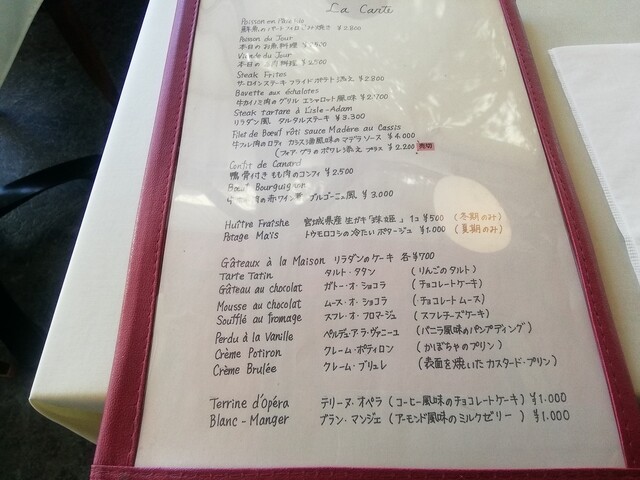 La Carte
Poisson en
鮮魚の 焼き ¥2.800
Poisson du Jour
本日のお魚料理
Viande du Jour
本日の お肉料理 ¥2.500
Steak Frites
サーロインステーキ フライドポテト添え ¥2.800
Bavette aux échalotes
牛カイノミ肉のグリル エシャロット風味 ¥2.700
Steak tartare à L'isle-Adam
リラダン風 タルタルステーキ ¥3.300
Filet de Boeuf rôti sauce Madère au Cassis
牛フィレ肉のロティ カシス酒風味のマデラソース ¥4.000
(フォアグラのポワレ添え プラス ¥2.200 売切
Confit de Canard
鴨骨付きもも肉のコンフィ ¥2.500
Boeuf Bourguignon
の赤ワイン煮 ブルゴーニュ風 ¥3.000
Huître Fraîshe 宮城県産 生ガキ「殊姫」1コ ¥500 (冬期のみ)
Potage Maïs トウモロコシの冷たいポタージュ ¥1.000 (夏期のみ)
Gâteaux à la Maison リラダンのケーキ 各¥700
Tarte Tatin タルト・タタン (りんごのタルト)
Gâteau au chocolat ガトー・オ・ショコラ (チョコレートケーキ)
Mousse au chocolat ムース・オ・ショコラ (チョコレートムース)
Soufflé au fromage スフレ・オ・フロマージュ (スフレチーズケーキ)
Perdu à la Vanille ペルデュ・ア・ラ・ヴァニーユ (バニラ風味のパンプディング)
Crème Potiron クレーム・ポティロン (かぼちゃのプリン)
Crème Brulée クレーム・ブリュレ (表面を焼いたカスタード・プリン)
Terrine d'Opéra テリーヌ・オペラ (コーヒー風味のチョコレートケーキ) ¥1.000
Blanc-Manger ブラン・マンジェ (アーモンド風味のミルクゼリー) ¥1.000